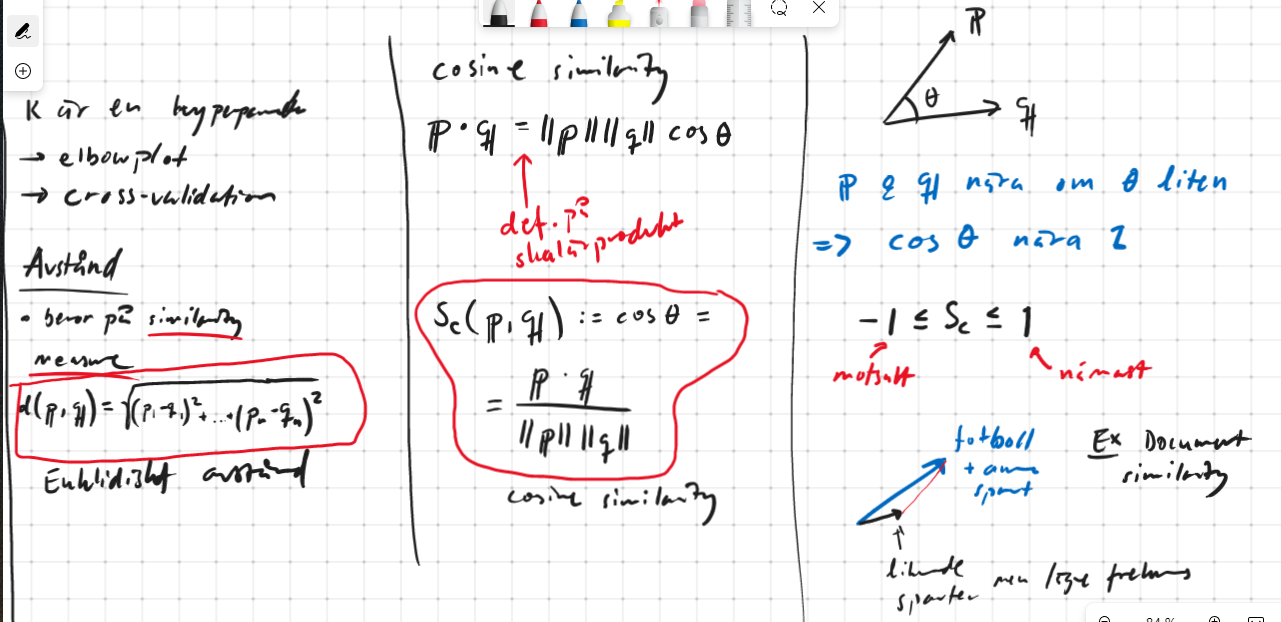 K är en hyperparameter
→ elbow plot
→ cross-validation
Avstånd
• beror på similarity
measure
d(p,q) = √(p₁-q₁)²+...+(pₙ-qₙ)²
Euklidiskt avstånd
cosine similarity
p · q = ||p|| ||q|| cos θ
def. på
skalärprodukt
S_c(p,q) := cos θ =
= p · q / ||p|| ||q||
cosine similarity
p
θ
q
p & q nära om θ liten
=> cos θ nära 1
-1 ≤ S_c ≤ 1
motsatt
närmast
fotboll
+ annan
sport
Ex Document
similarity
liknande
sporter men lägre frekvens
84 %